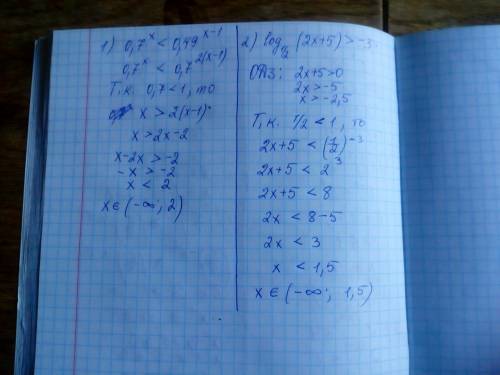 1) 0,7^x < 0,49^(x-1)
0,7^x < 0,7^(2(x-1))
Т.к. 0,7<1, то
x > 2(x-1)
x > 2x-2
x-2x > -2
-x > -2
x < 2
x ∈ (-∞; 2)
2) log_(1/2) (2x+5) > -3
ОДЗ: 2x+5>0
2x>-5
x>-2,5
Т.к. 1/2 < 1, то
2x+5 < (1/2)^(-3)
2x+5 < 2^3
2x+5 < 8
2x < 8-5
2x < 3
x < 1,5
x ∈ (-∞; 1,5)